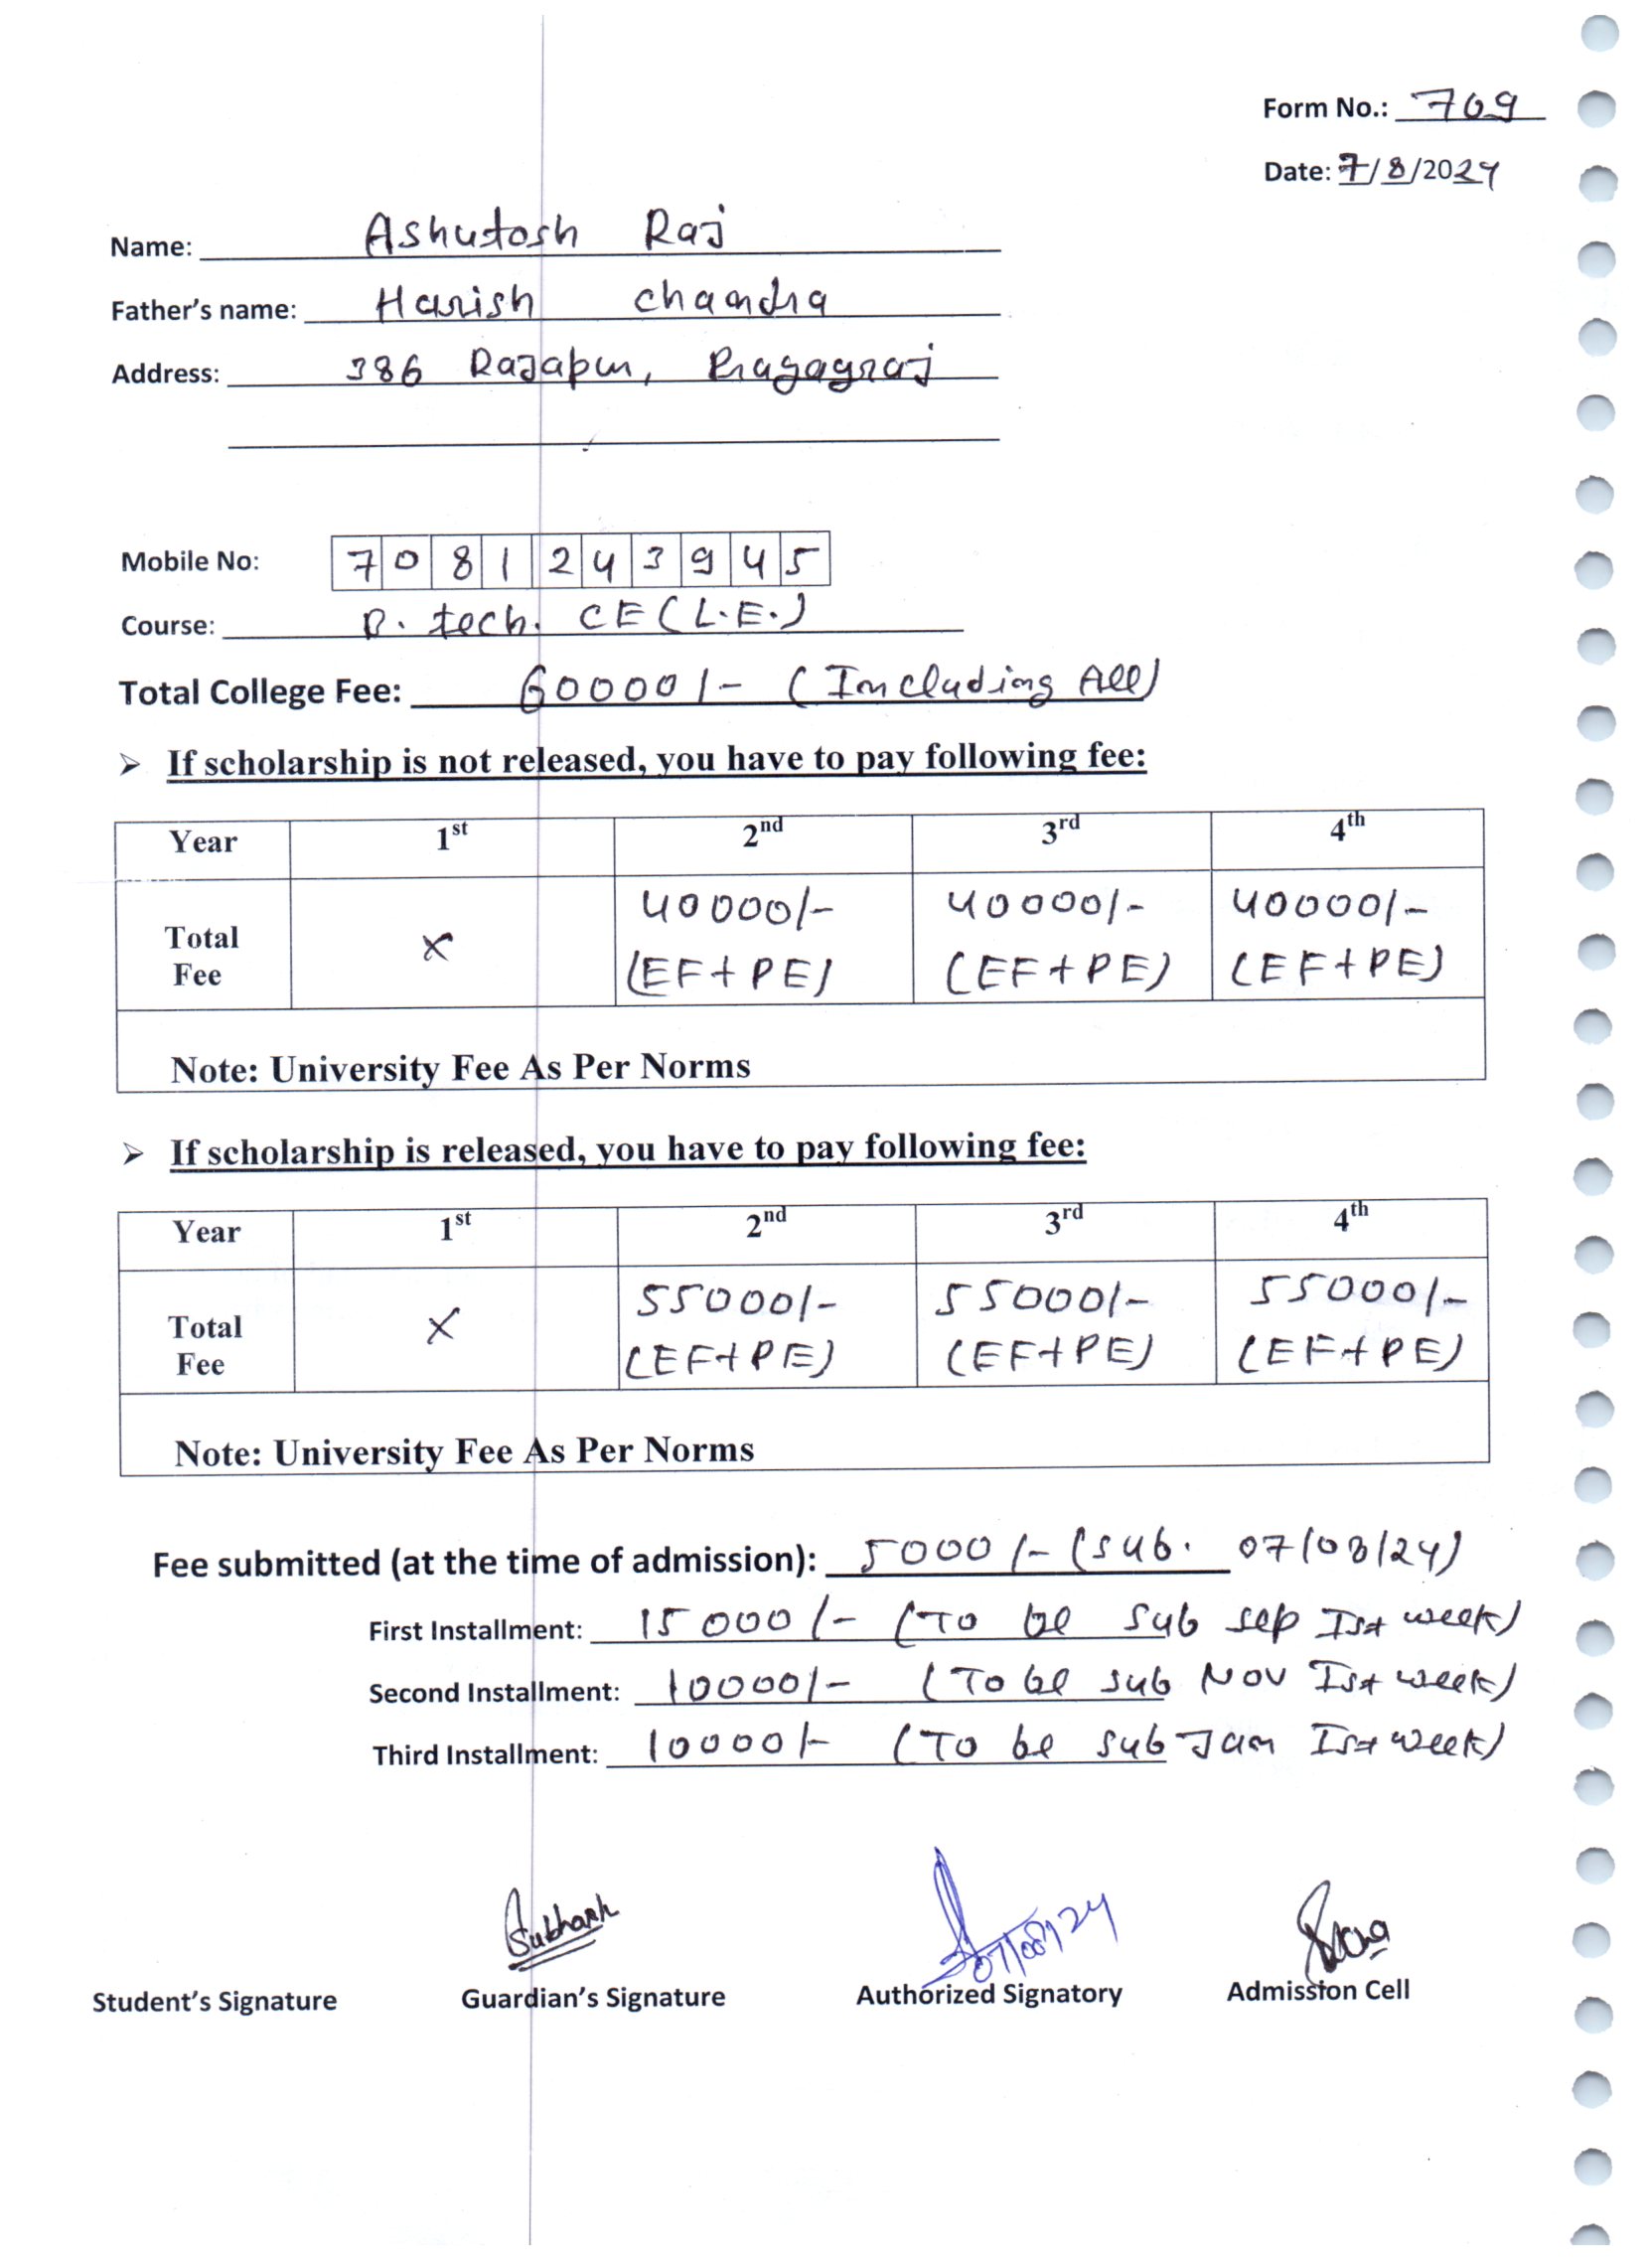 Form No.: 709
Date: 7/8/2024
Name: Ashutosh Raj
Father's name: Harish chandra
Address: 386 Rajapur, Prayagraj
Mobile No: 7081243945
Course: B. tech. CE (L.E.)
Total College Fee: 60000/- (Including All)
➢ If scholarship is not released, you have to pay following fee:
Year 1st 2nd 3rd 4th
Total Fee × 40000/- (EF+PE) 40000/- (EF+PE) 40000/- (EF+PE)
Note: University Fee As Per Norms
➢ If scholarship is released, you have to pay following fee:
Year 1st 2nd 3rd 4th
Total Fee × 55000/- (EF+PE) 55000/- (EF+PE) 55000/- (EF+PE)
Note: University Fee As Per Norms
Fee submitted (at the time of admission): 5000/- (sub. 07/08/24)
First Installment: 15000/- (To be sub sep Ist week)
Second Installment: 10000/- (To be sub Nov Ist week)
Third Installment: 10000/- (To be sub Jan Ist week)
07/08/24
Student's Signature Guardian's Signature Authorized Signatory Admission Cell